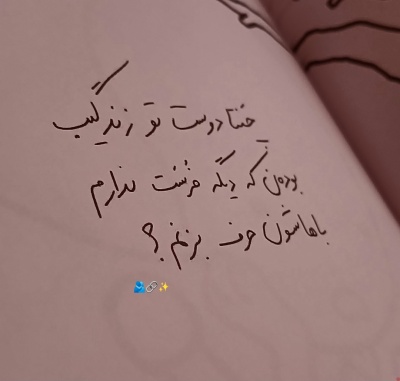 چنتا دوست تو
بودن که دیگه فرصت ندارم
باهاشون حرف بزنم ؟
🫂🔗✨